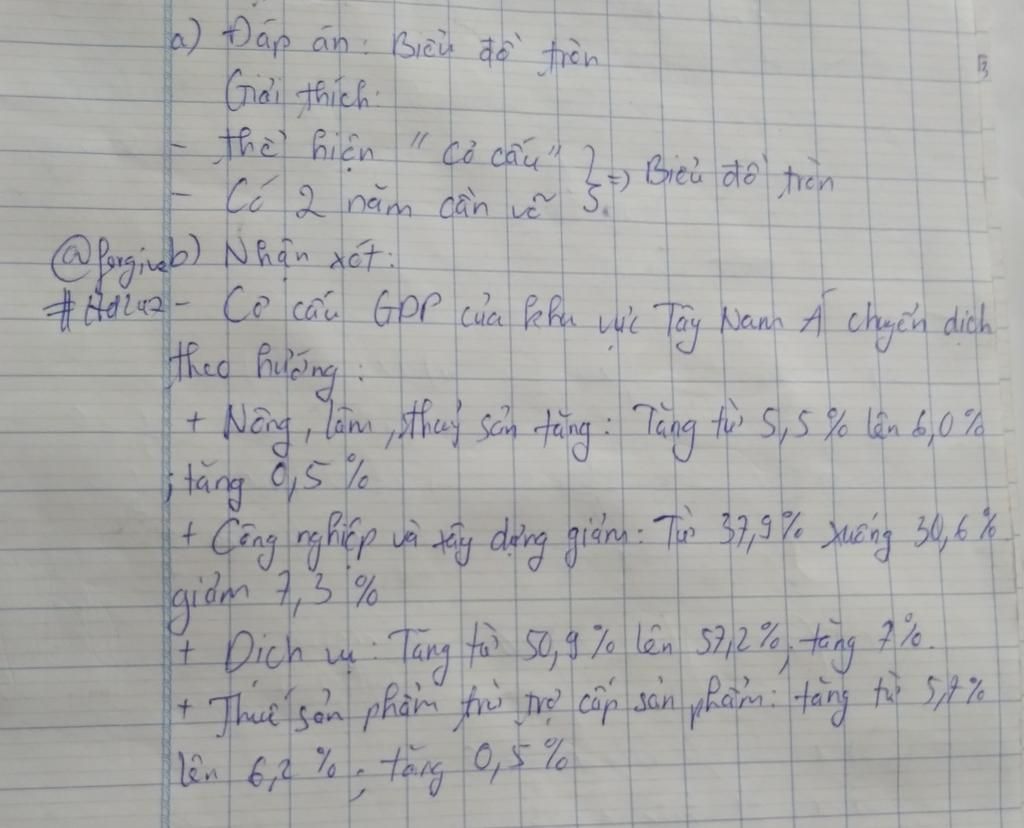 a) Đáp án: Biểu đồ tròn
Giải thích:
- thể hiện "Cơ cấu" } => Biểu đồ tròn
- Có 2 năm cần vẽ
@forgive b) Nhận xét:
#Hdluz - Cơ cấu GDP của khu vực Tây Nam Á chuyển dịch
theo hướng:
+ Nông, lâm, thuỷ sản tăng: Tăng từ 5,5% lên 6,0%
; tăng 0,5%
+ Công nghiệp và xây dựng giảm: Từ 37,9% xuống 30,6%
giảm 7,3%
+ Dịch vụ: Tăng từ 50,9% lên 57,2%; tăng 7%.
+ Thuế sản phẩm trừ trợ cấp sản phẩm: tăng từ 5,7%
lên 6,2%; tăng 0,5%